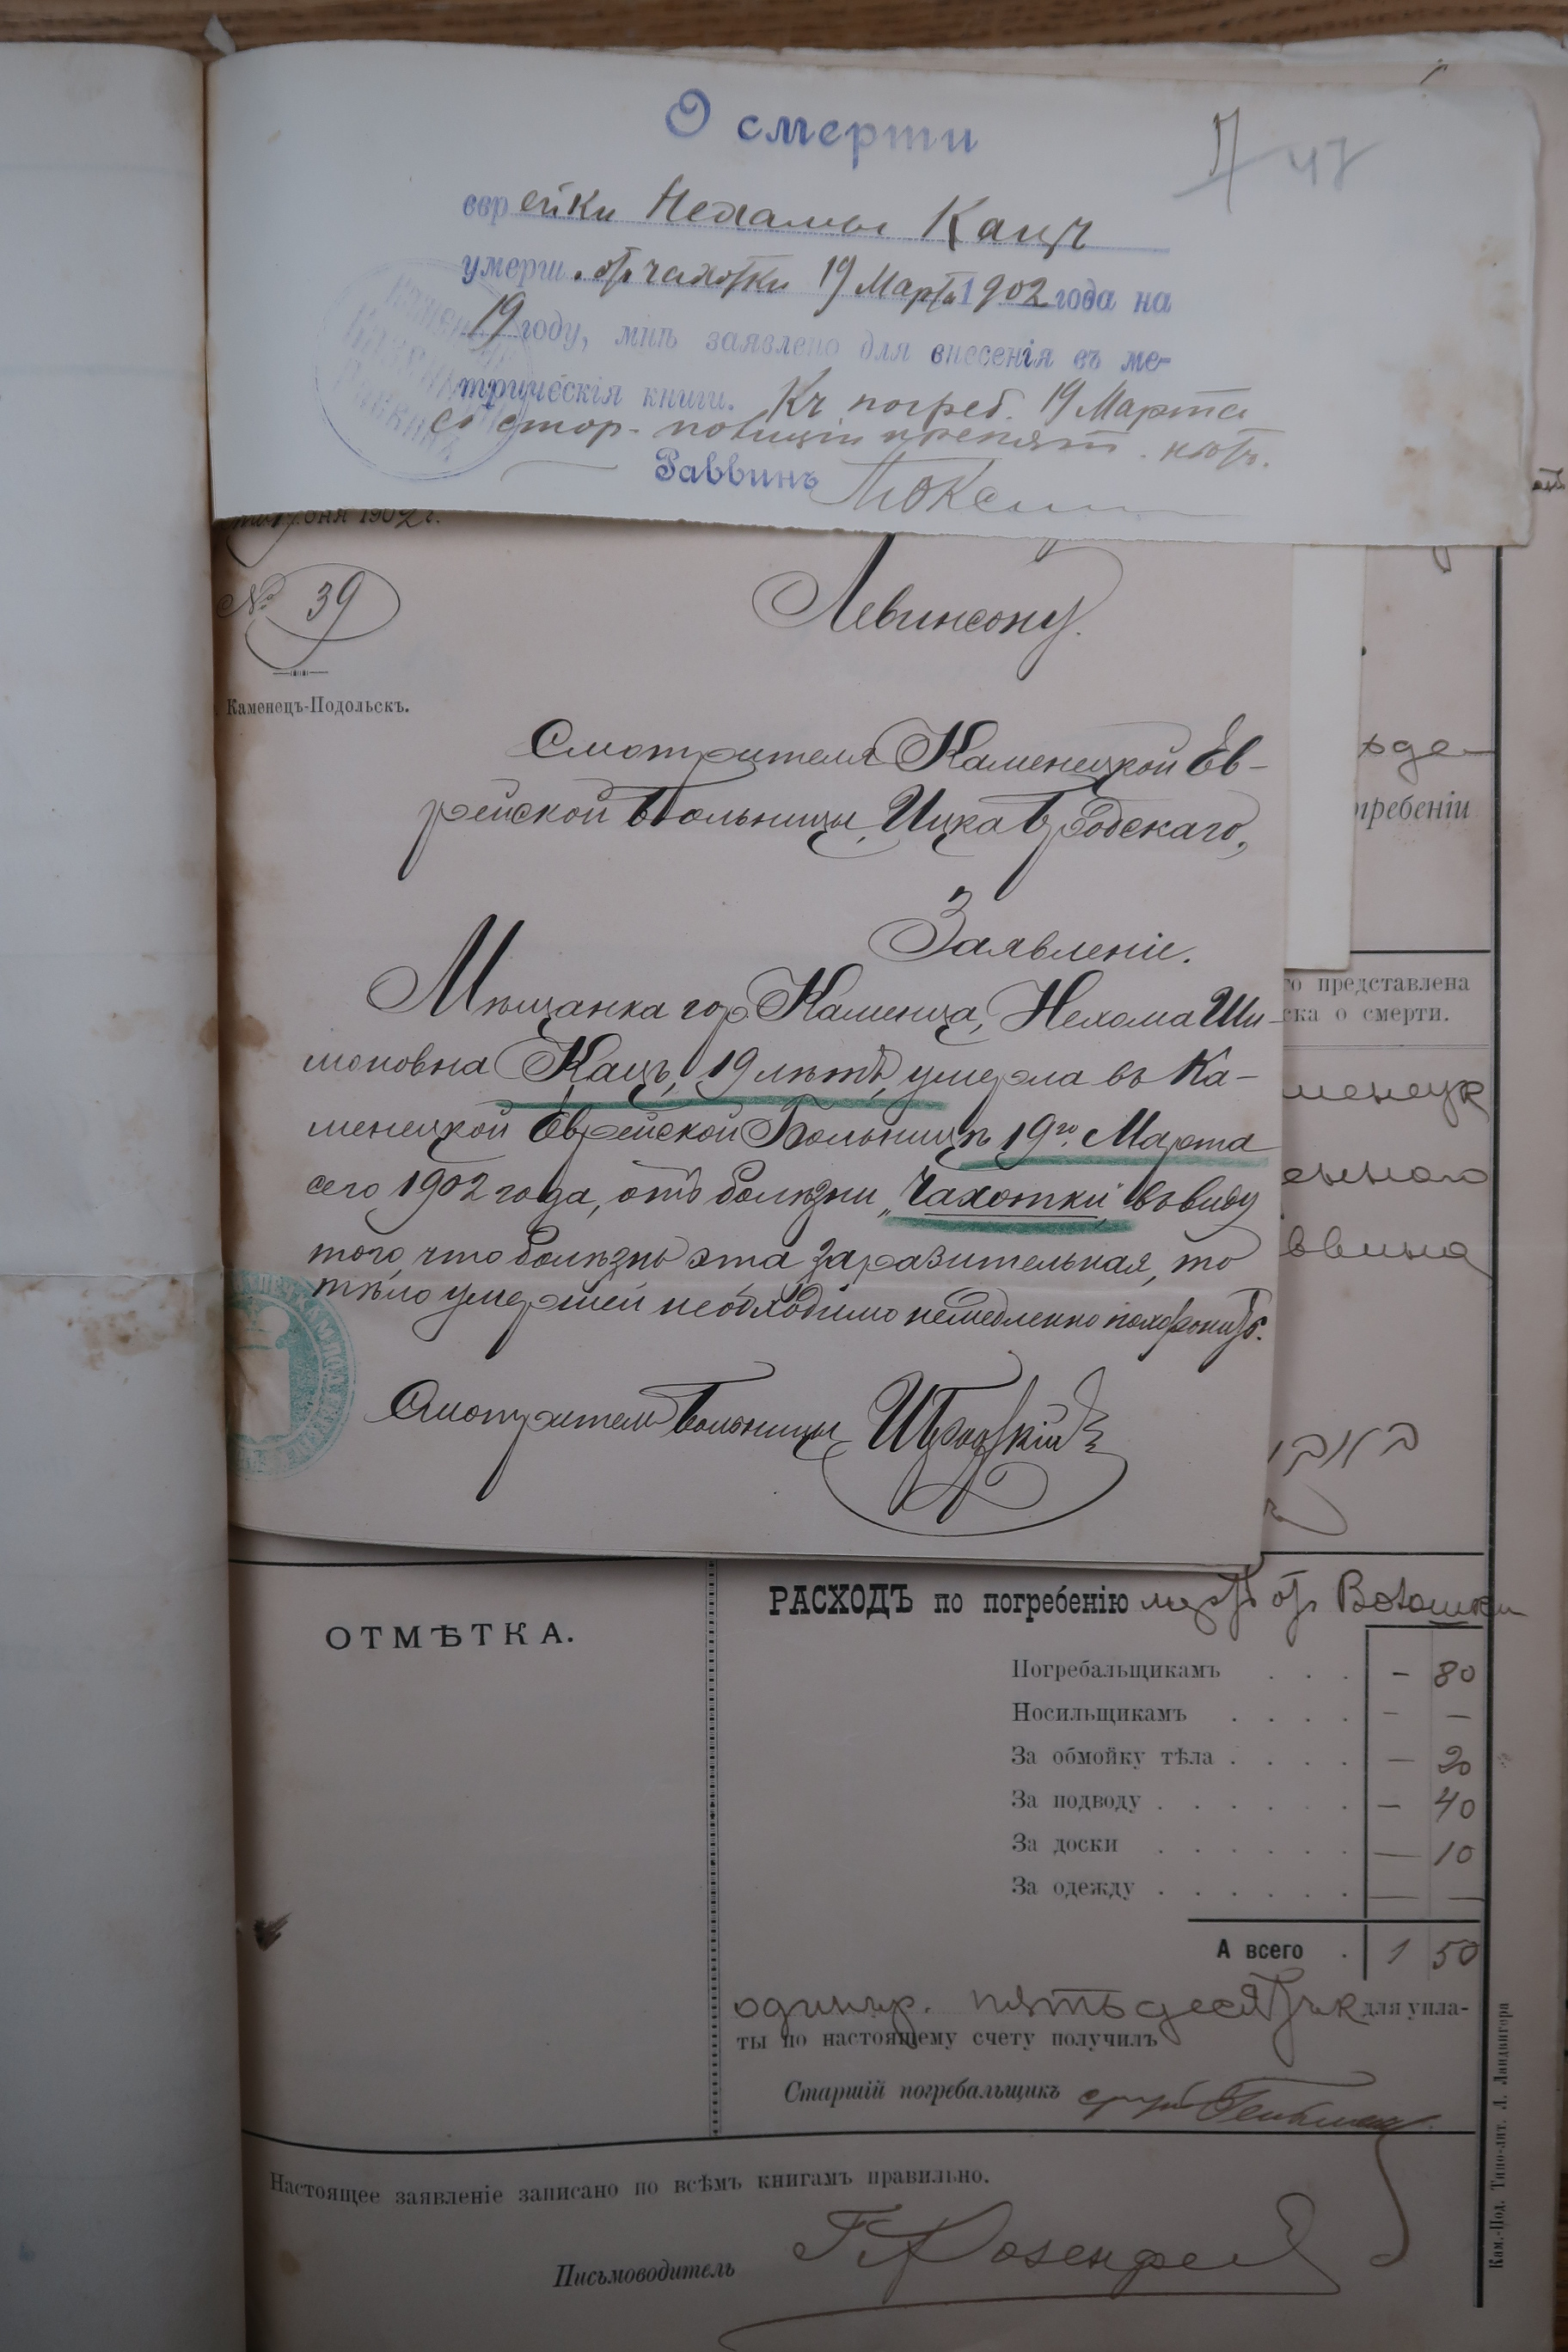 О смерти
47
еврейки Нехамы Кацъ
умерш. отъ чахотки 19 Марта 1902 года на
19 году, мнѣ заявлено для внесенія въ ме-
трическія книги. Къ погреб. 19 Марта
со стор. полиціи препятст. нѣтъ.
Раввинъ
дня 1902 г.
№ 39
Левинсону.
Каменецъ-Подольскъ.
Смотрителя Каменецкой Ев-
рейской Больницы, Ицка Бродскаго,
Заявленіе.
Мѣщанка гор. Каменца, Нехома Ши-
моновна Кацъ, 19 лѣтъ, умерла въ Ка-
менецкой Еврейской Больницѣ 19го Марта
сего 1902 года, отъ болѣзни „Чахотки" въ виду
того, что болѣзнь эта заразительная, то
тѣло умершей необходимо немедленно похоронить.
Смотритель Больницы ИБродскій
жде-
гребеніи
го представлена
ска о смерти.
менецк
еннаго
ввина
ОТМѢТКА.
РАСХОДЪ по погребенію
Погребальщикамъ . . . - 80
Носильщикамъ . . . . - -
За обмойку тѣла . . . . - 20
За подводу . . . . . . - 40
За доски . . . . . . - 10
За одежду . . . . . . - -
А всего . 1 50
одинъ р. пятьдесятъ к для упла-
ты по настоящему счету получилъ
Старшій погребальщикъ
Настоящее заявленіе записано по всѣмъ книгамъ правильно.
Письмоводитель Розенфел
Кам.-Под. Типо-лит. Л. Ландвигера